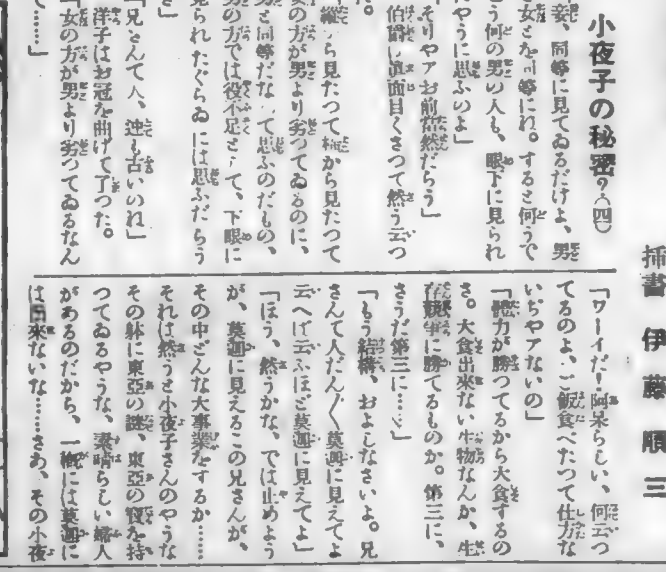 挿書 伊藤順三
小夜子の秘密？（四）
妾、同等に見てゐるだけよ、男
と女とを同等にね。すると何うで
う何の男の人も、眼下に見られ
たやうに思ふのよ」
そりやアお前当然だらう」
伯爵は真面目くさつて然う云つ
た。
縦から見たつて横から見たつて
女の方が男より劣つてゐるのに、
男と同等だなんて思ふのだもの、
男の方では役不足として、下眼に
見られたぐらゐには思ふだらう
さ」
「兄さんて人、迚も古いのね」
洋子はお冠を曲げて了つた。
「女の方が男より劣つてゐるなん
て……」
「ワーイだ！阿呆らしい、何云つ
てるのよ、ご飯食べたつて仕方な
いぢやアないの」
「体力が勝つてるから大食するの
さ。大食出来ない生物なんか、生
存競争に勝てるものか。第三に、
さうだ第三に……」
「もう結構、およしなさいよ。兄
さんて人だん／＼莫迦に見えてよ
云へば云ふほど莫迦に見えてよ」
「ほう、然うかな、では止めよう
が、莫迦に見えるこの兄さんが、
その中どんな大事業をするか……
それは然うと小夜子さんのやうな
その躰に東亜の謎、東亜の寶を持
つてゐるやうな、素晴らしい婦人
があるのだから、一概には莫迦に
は出来ないな……さあ、その小夜